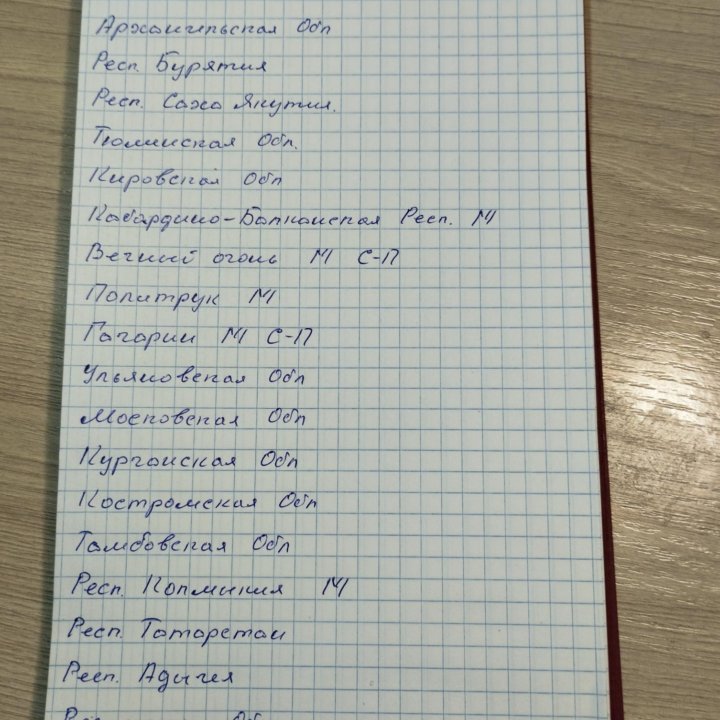 Архангельская Обл
Респ Бурятия
Респ. Саха Якутия.
Тюменская Обл.
Кировская Обл
Кабардино-Балканская Респ. М
Вечный огонь М С-П
Политрук М
Гагарин М С-П
Ульяновская Обл
Московская Обл
Курганская Обл
Костромская Обл
Тамбовская Обл
Респ. Калмыкия М
Респ. Татарстан
Респ. Адыгея
Обл